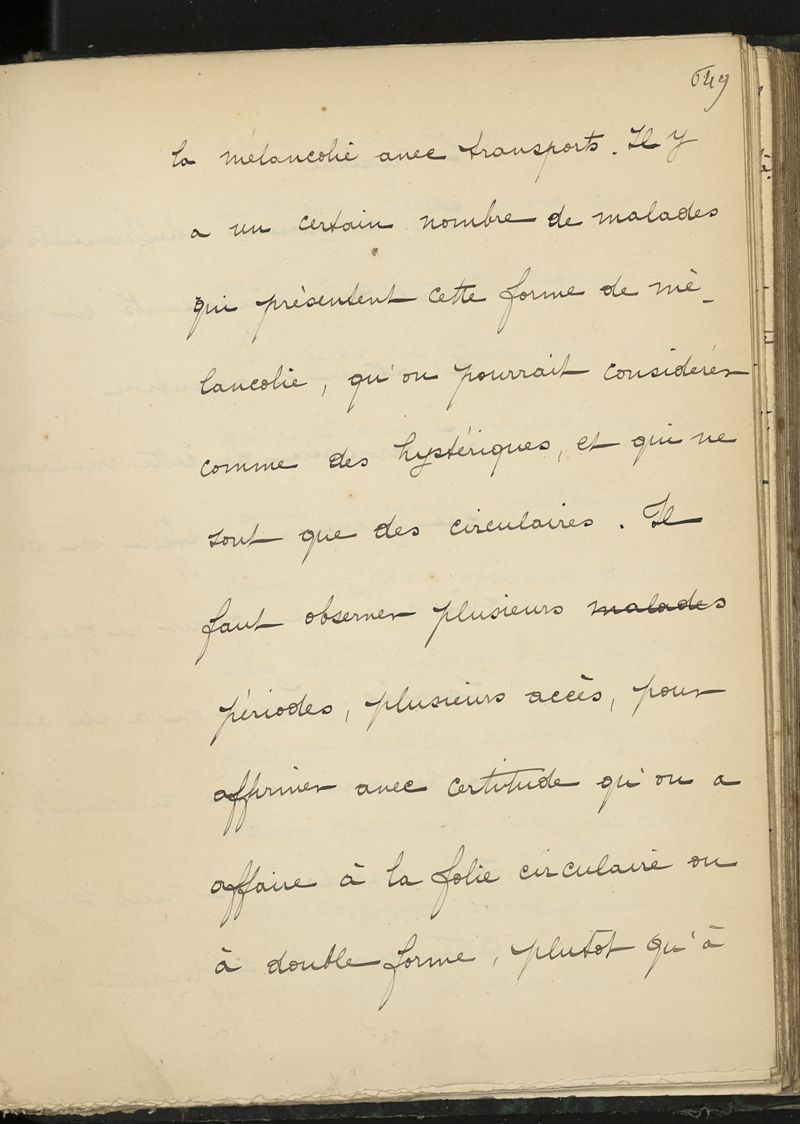 649
la mélancolie avec transports. Il y
a un certain nombre de malades
qui présentent cette forme de mé-
lancolie, qu'on pourrait considérer
comme des hystériques, et qui ne
sont que des circulaires. Il
faut observer plusieurs malades
périodes, plusieurs accès, pour
affirmer avec certitude qu'on a
affaire à la folie circulaire ou
à double forme, plutôt qu'à